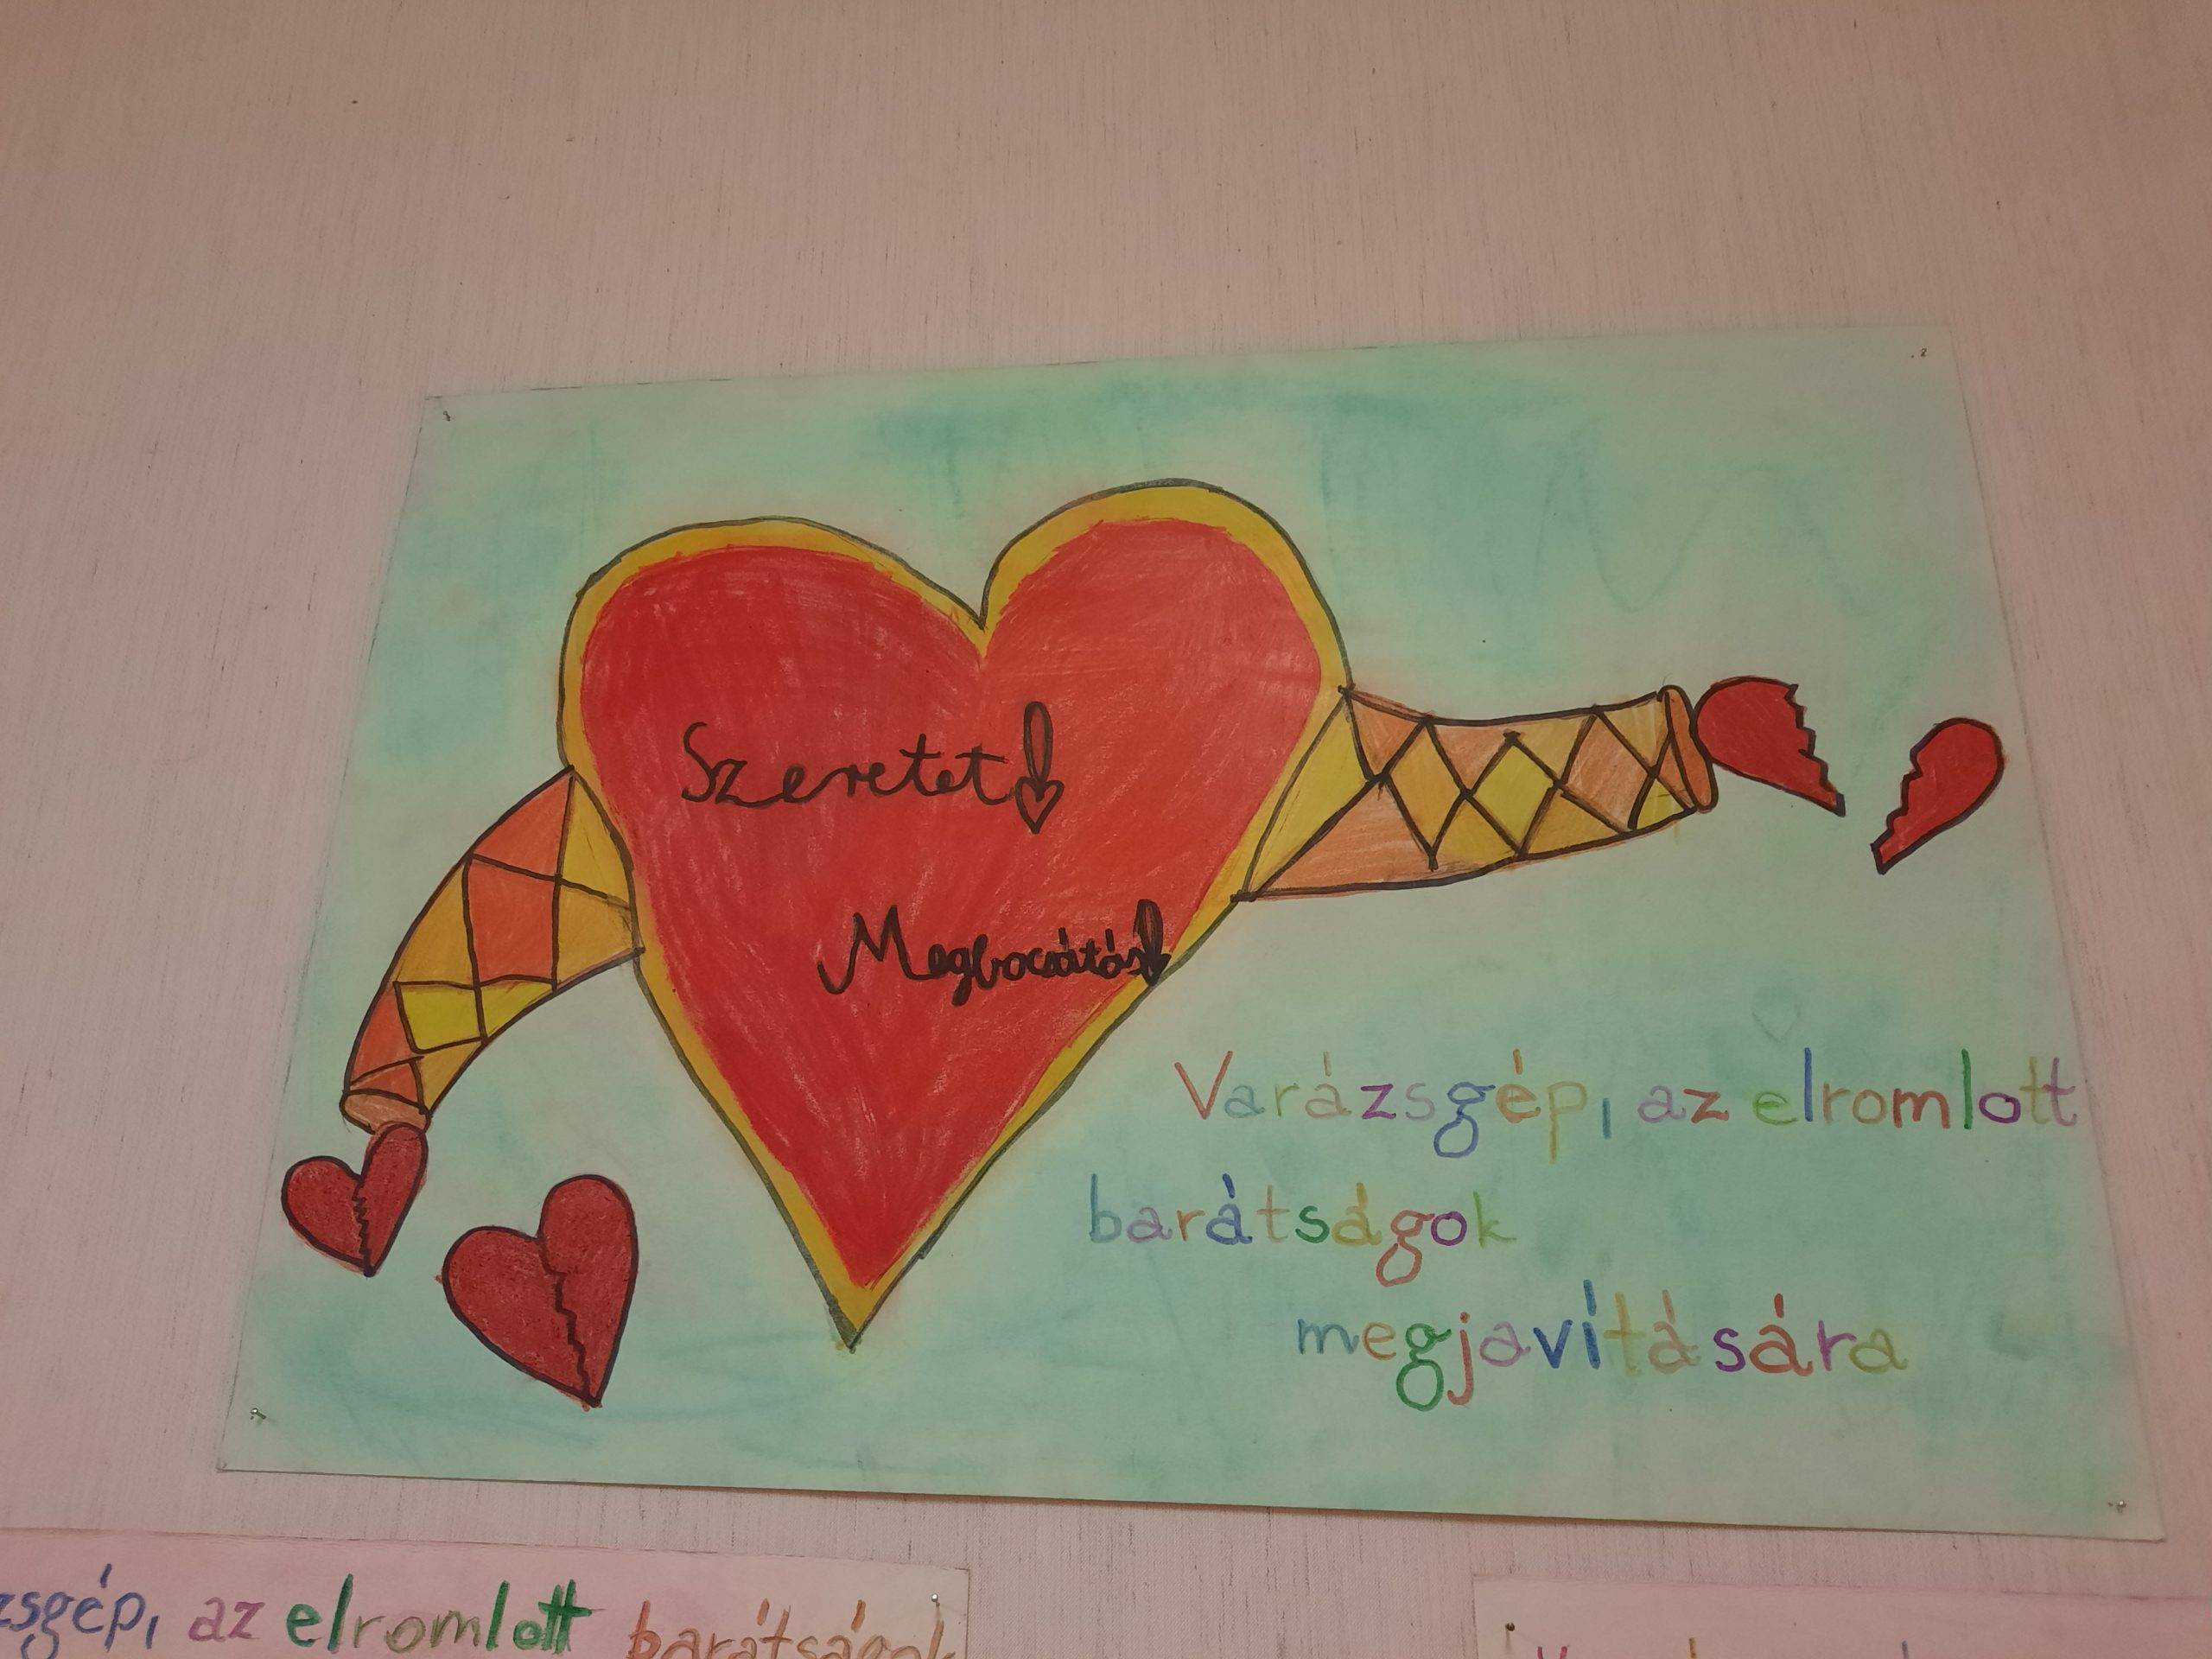 Szeretet!
Megbocsátás!
Varázsgép, az elromlott
barátságok
megjavítására
zsgép, az elromlott barátságok